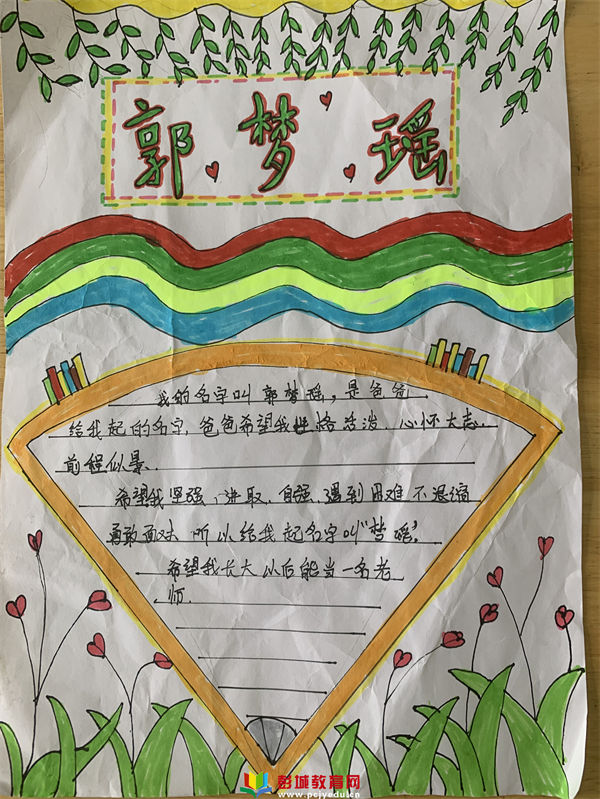 郭梦瑶
我的名字叫郭梦瑶，是爸爸
给我起的名字，爸爸希望我性格活泼、心怀大志、
前程似景．
希望我坚强、进取、自强、遇到困难不退缩
勇敢面对、所以给我起名字叫“梦瑶”．
希望我长大以后能当一名老
师．
彭城教育网
www.pcjyedu.cn